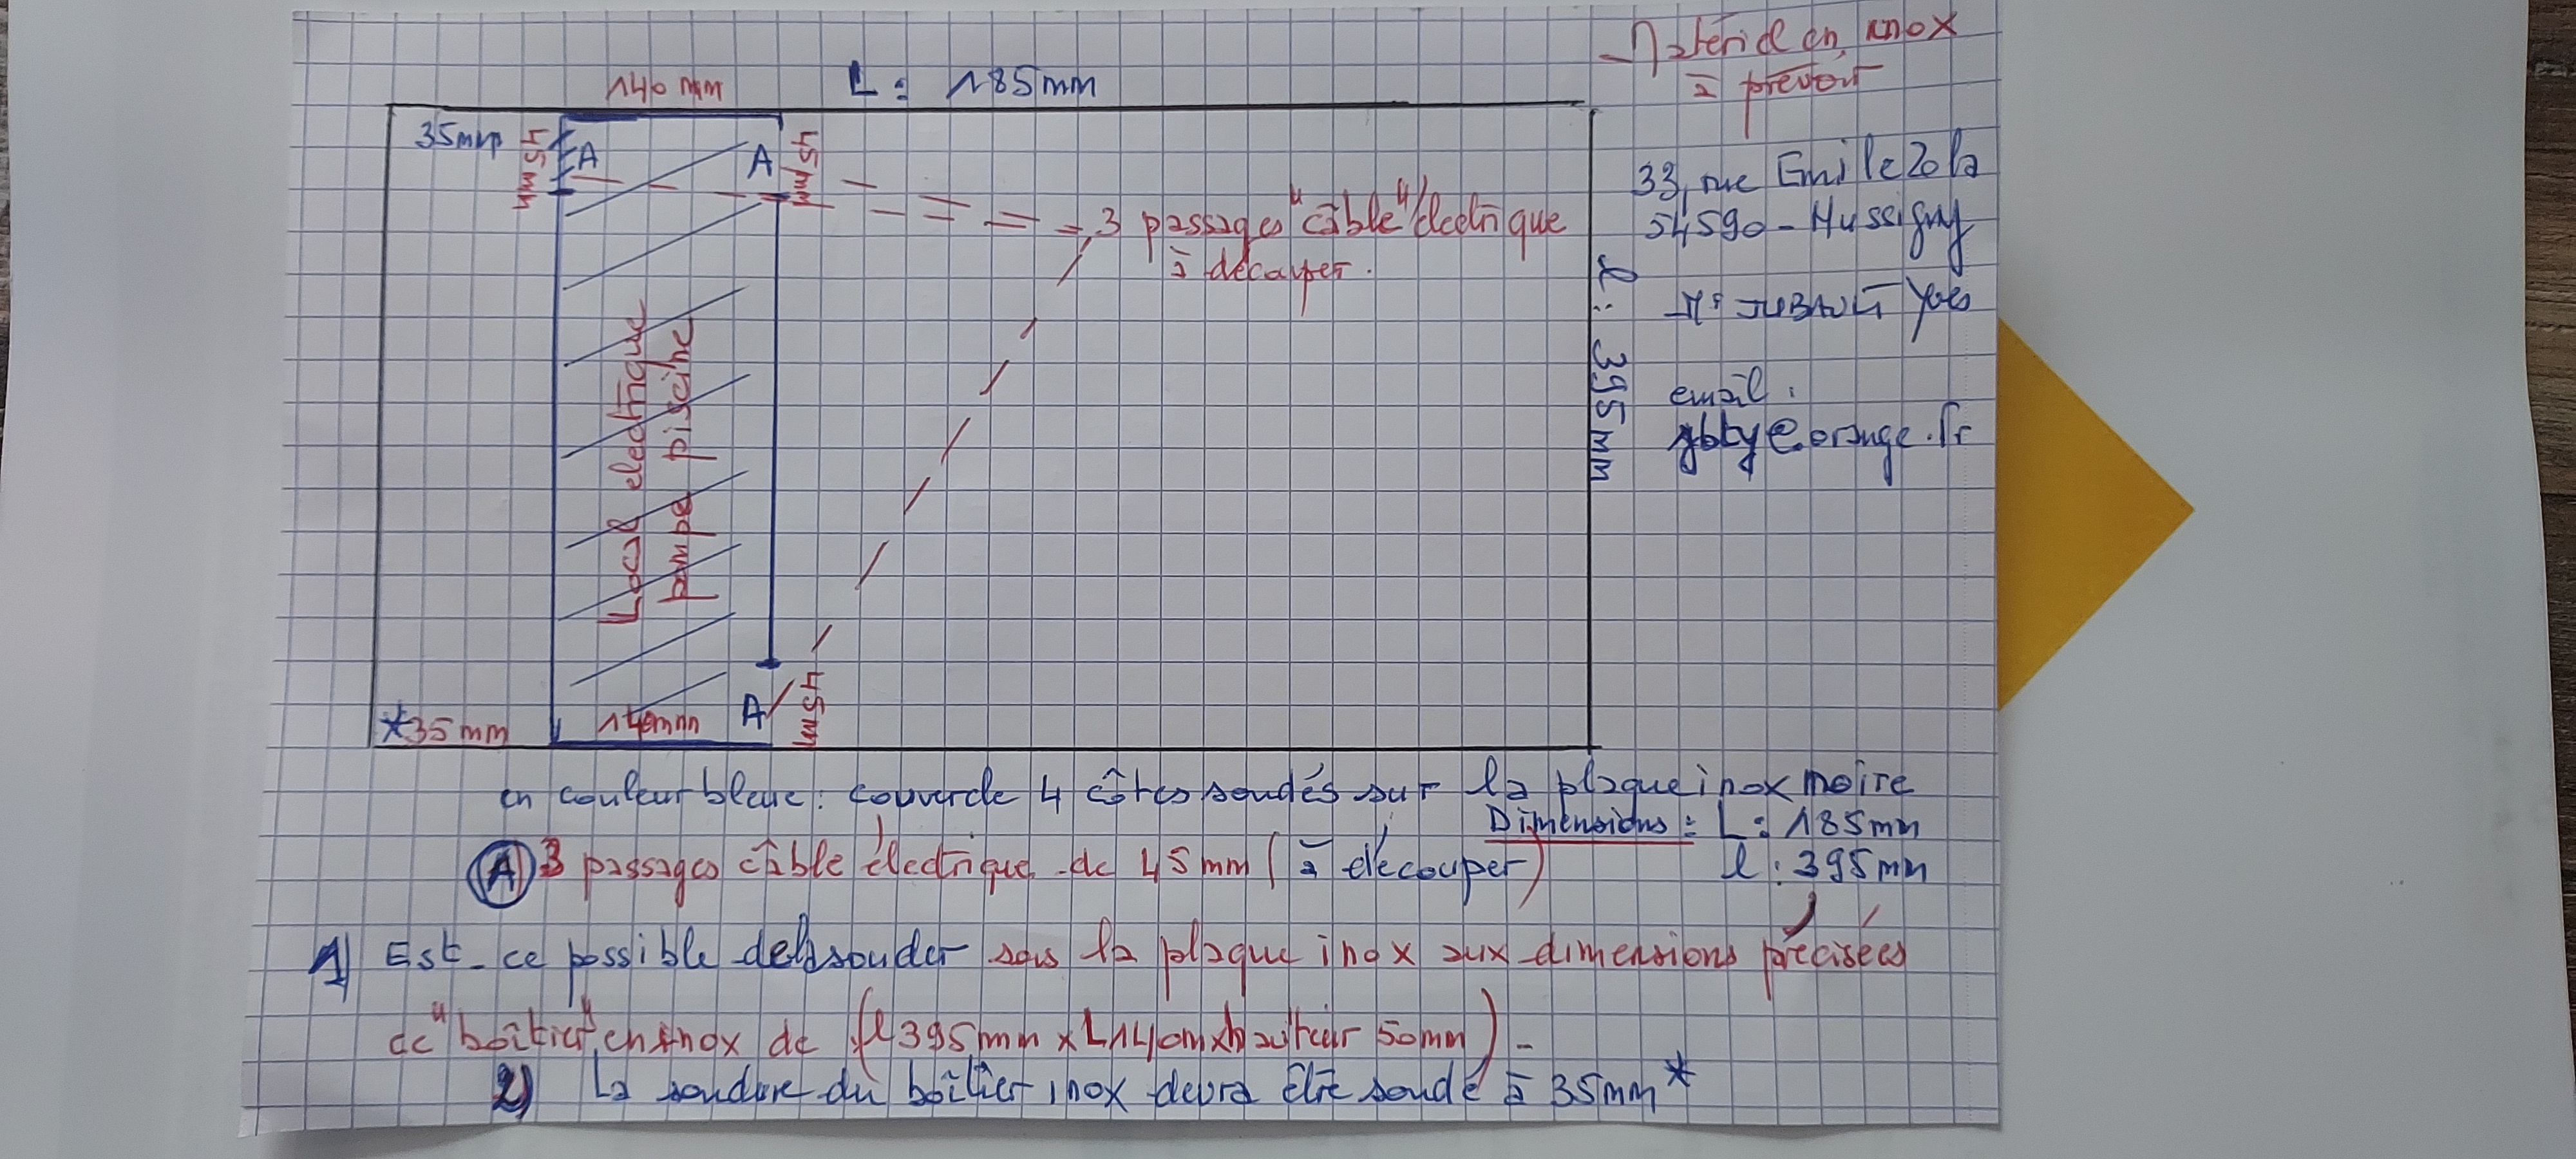 140 mm L: 185mm
Matériel en inox
à prévoir
35mm 45 mm A A 45 mm
3 passages "câble" électrique
à découper.
33, rue Emile Zola
54590 - Hussigny
Mr Yves
email :
@orange.fr
l: 395 mm
Local électrique
pompe piscine
*35 mm 140mm A 45 mm
en couleur bleue: couvercle 4 côtés soudés sur la plaque inox noire
Dimensions: L: 185mm
l: 395mm
A 3 passages câble électrique de 45mm (à découper)
1) Est-ce possible de souder sous la plaque inox aux dimensions précisées
de "boîtier" en inox de (l 395mm x L140mm x hauteur 50mm) -
2) La soudure du boîtier inox devra être soudé à 35mm*